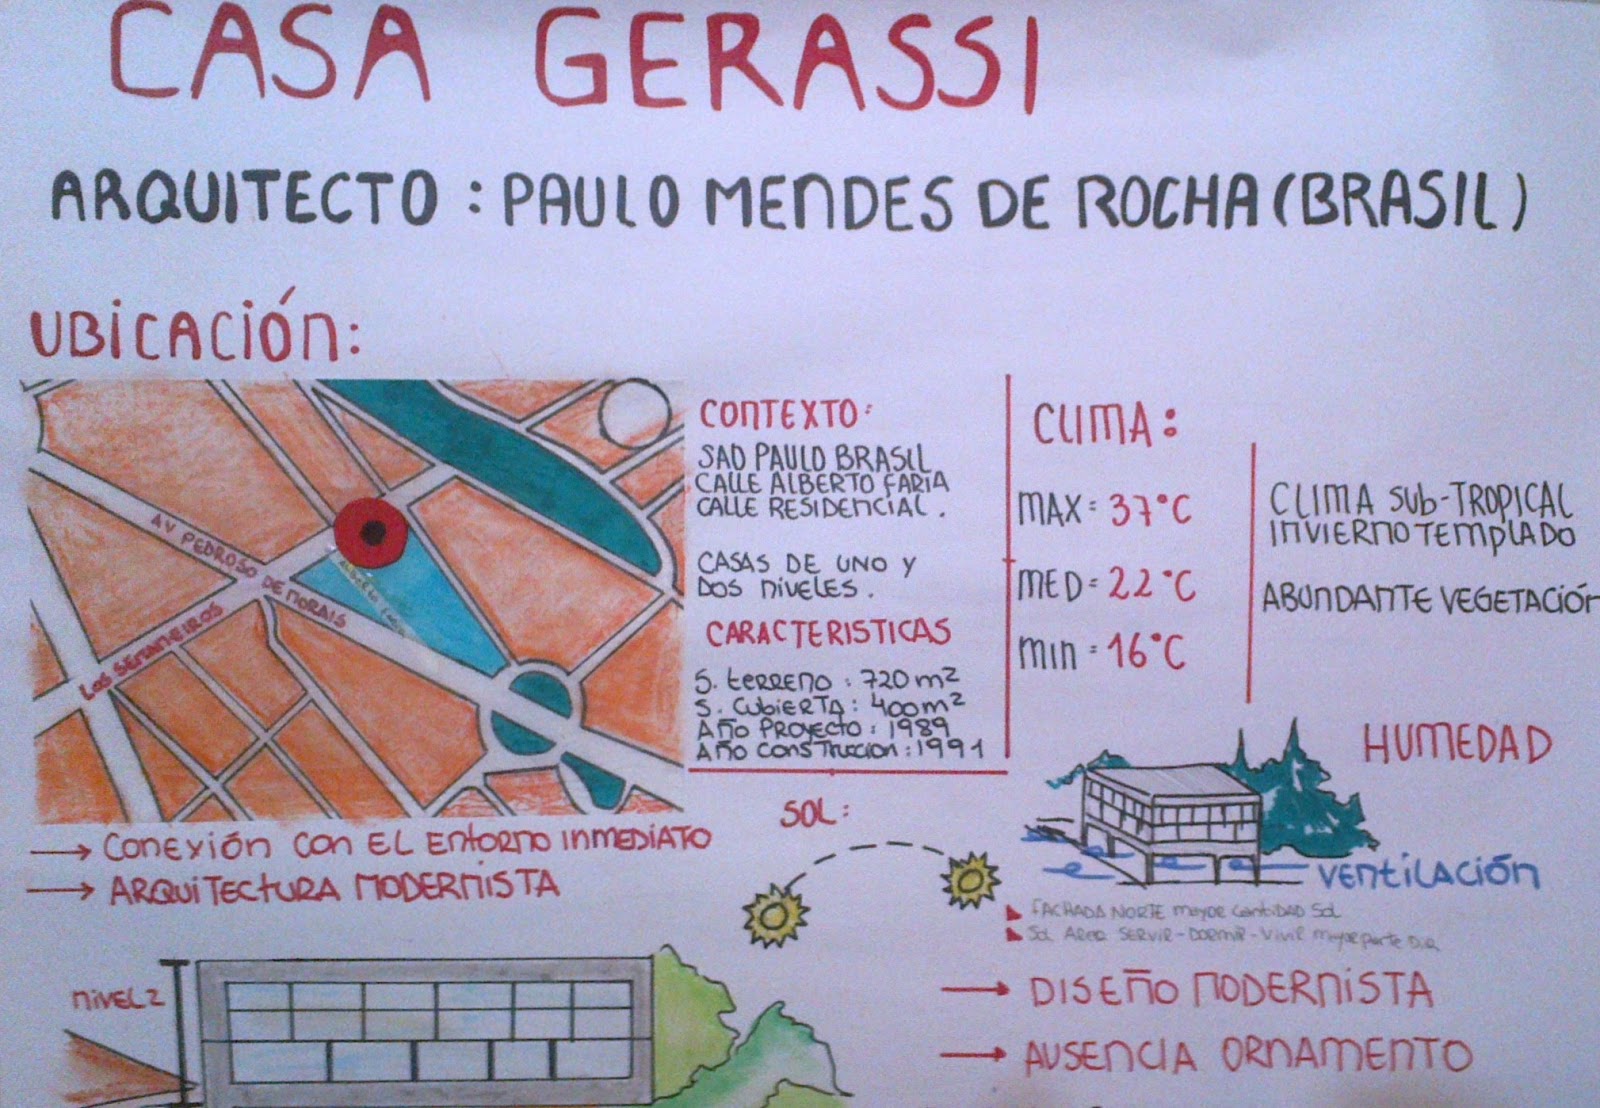 CASA GERASSI
ARQUITECTO : PAULO MENDES DE ROCHA (BRASIL)
UBICACIÓN:
AV PEDROSO DE MORAIS
LOS SEMANEIROS
CONTEXTO:
SAO PAULO BRASIL
CALLE ALBERTO FARIA
CALLE RESIDENCIAL.
CASAS DE UNO Y
DOS NIVELES.
CARACTERISTICAS
S. TERRENO : 720 m²
S. CUBIERTA : 400 m²
AÑO PROYECTO : 1989
AÑO CONSTRUCCION : 1991
CLIMA:
MAX = 37°C
MED = 22°C
MIN = 16°C
CLIMA SUB-TROPICAL
INVIERNO TEMPLADO
ABUNDANTE VEGETACIÓN
HUMEDAD
VENTILACIÓN
SOL:
→ CONEXIÓN CON EL ENTORNO INMEDIATO
→ ARQUITECTURA MODERNISTA
FACHADA NORTE MAYOR CANTIDAD SOL
SOL AREA SERVIR - DORMIR - VIVIR MAYOR PARTE DIA
→ DISEÑO MODERNISTA
→ AUSENCIA ORNAMENTO
NIVEL 2